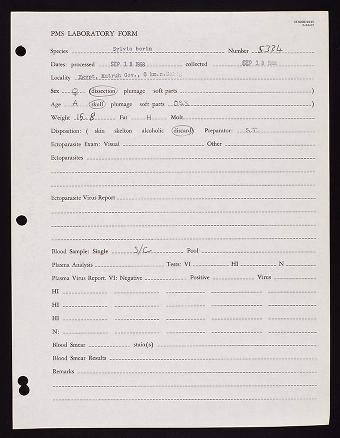 PMS LABORATORY FORM
Species Sylvia borin Number 5384
Dates: processed SEP 18 1968 collected SEP 18
Locality Egypt, Matruh Gov., 8 km.
Sex ♀ (dissection) plumage soft parts )
Age A (skull) plumage soft parts O.S.S. )
Weight 15.8 Fat H Molt
Disposition: ( skin skelton alcoholic (discard) Preparator: S.T.
Ectoparasite Exam: Visual Other
Ectoparasites
Ectoparasite Virus Report
Blood Sample: Single S/C Pool
Plasma Analysis Tests: VI HI N
Plasma Virus Report. VI: Negative Positive Virus
HI
HI
HI
N:
Blood Smear stain(s)
Blood Smear Results
Remarks